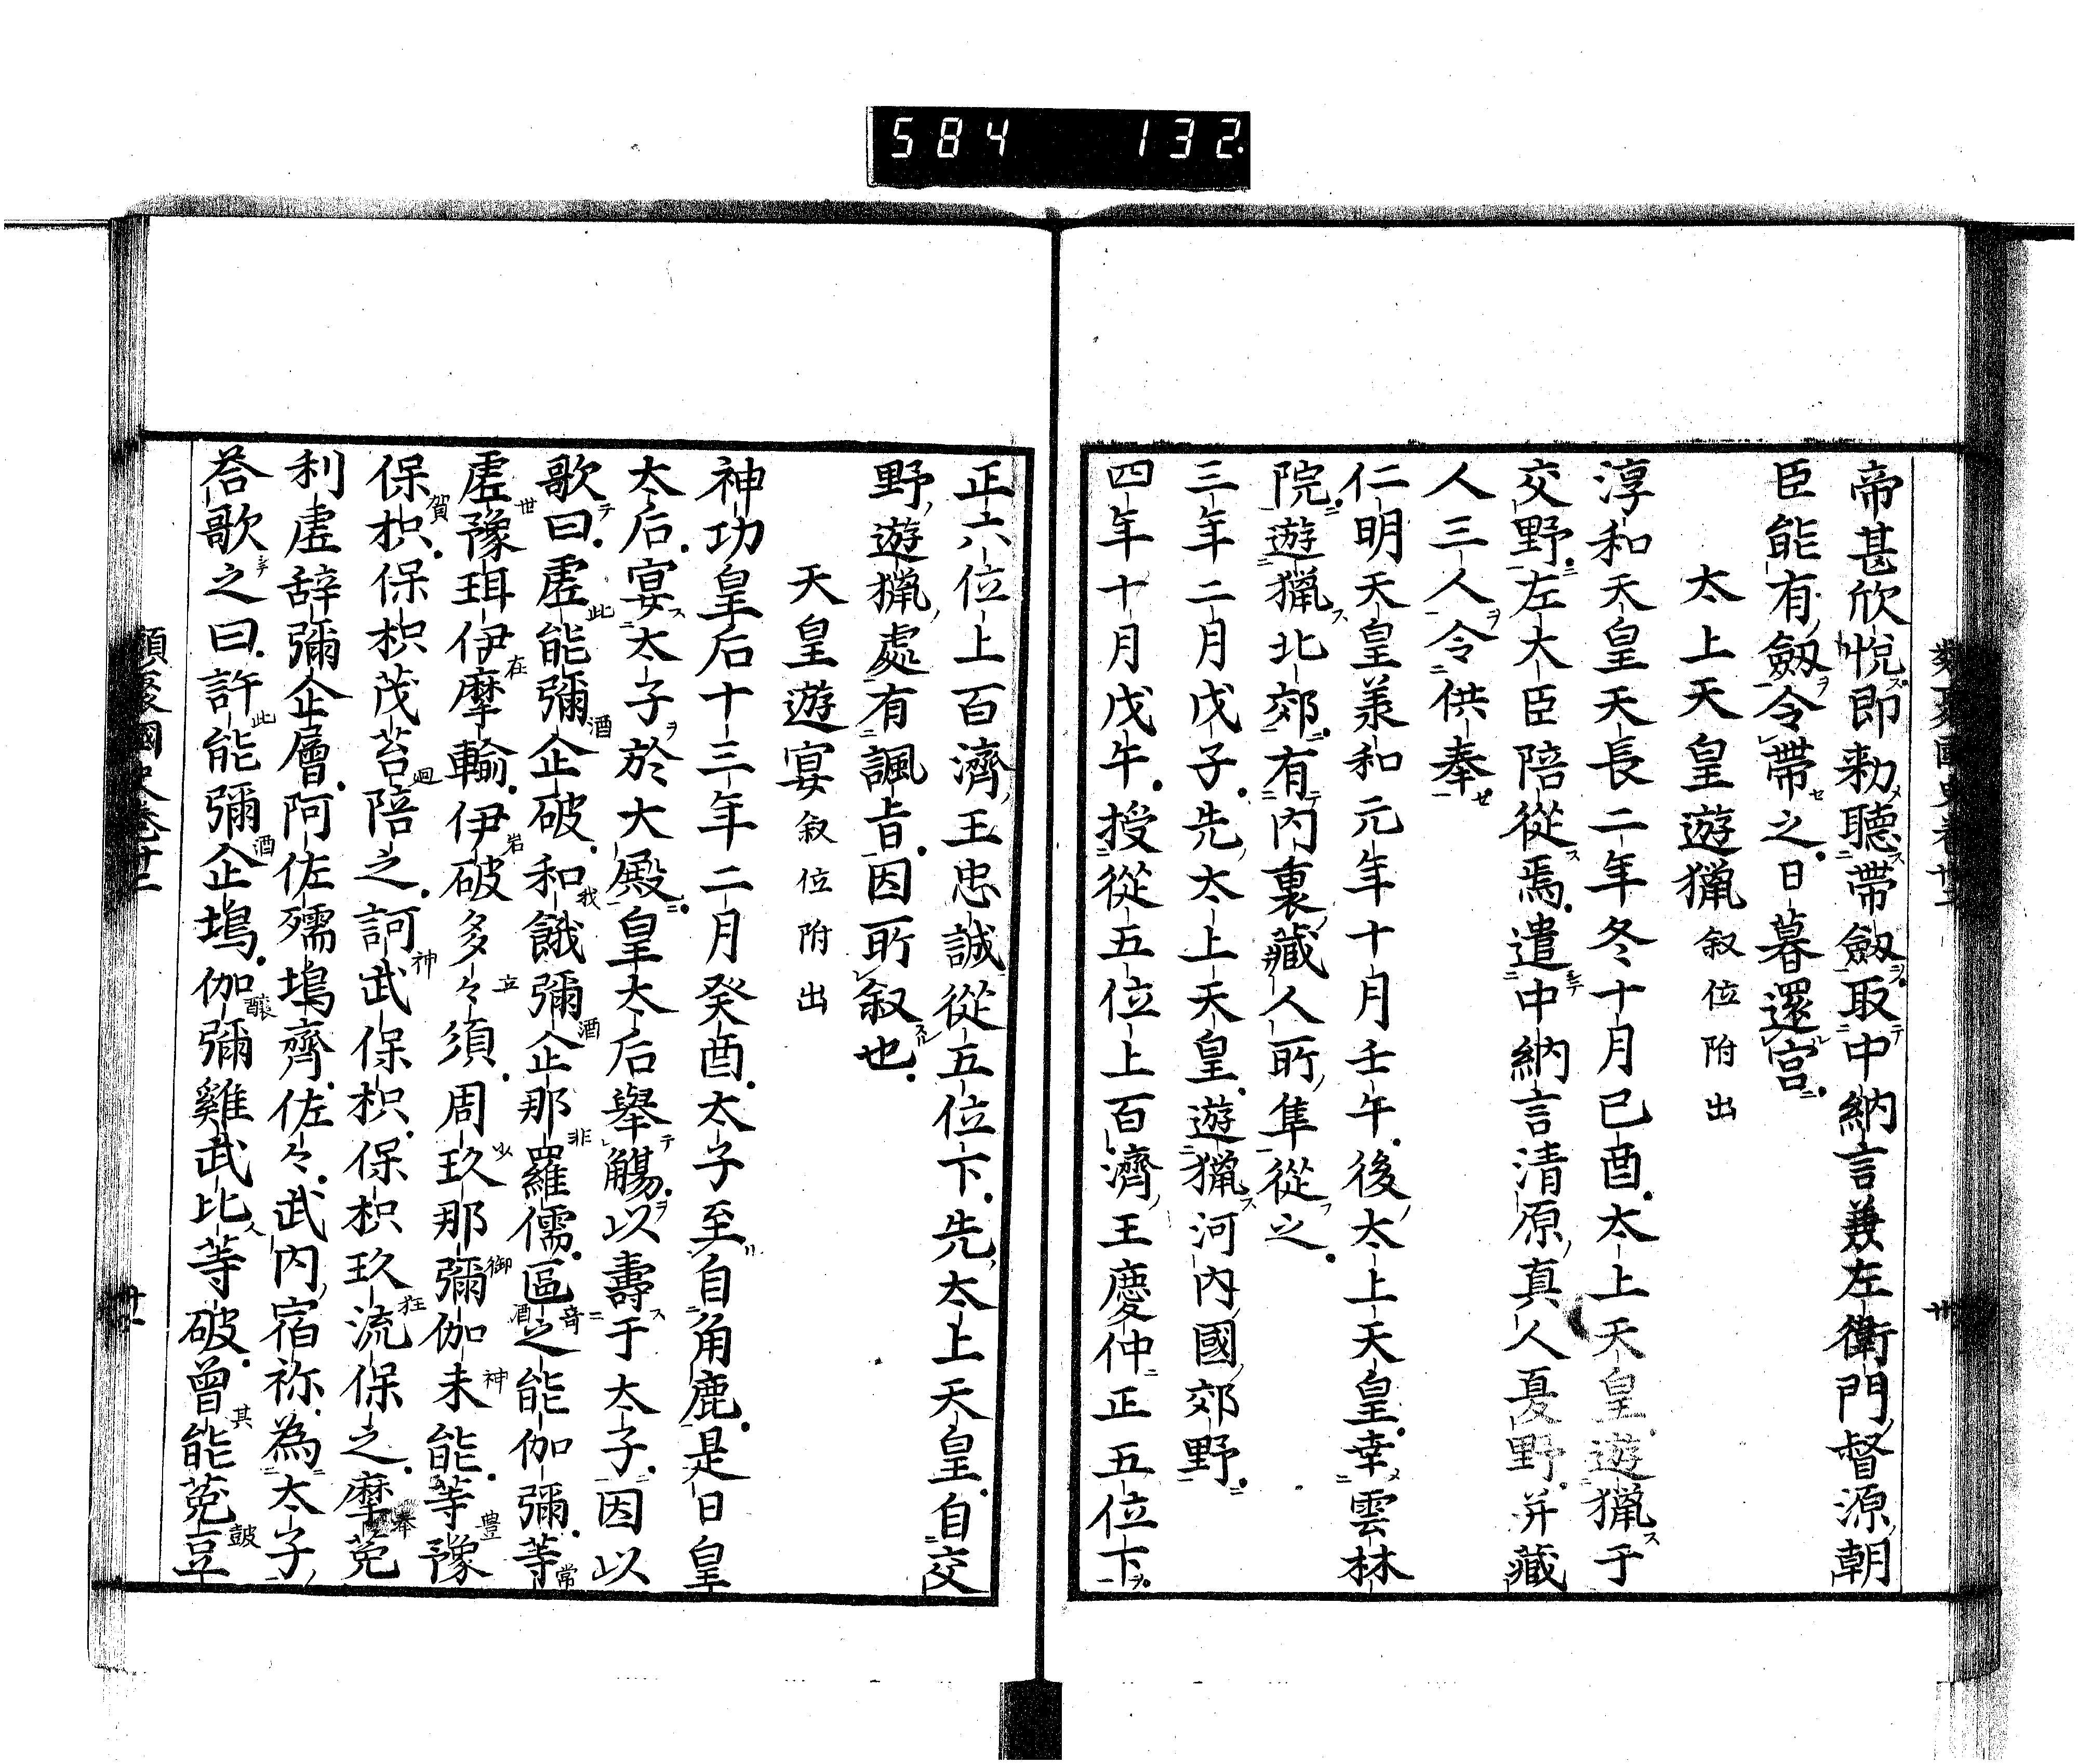 584 132.
帝甚欣悅即勑聽帶劔取中納言兼左衛門督源朝
臣能有劔令帶之日暮還宮
太上天皇遊獵叙位附出
淳和天皇天長二年冬十月己酉太上天皇遊獵于
交野左大臣陪從焉遣中納言清原真人夏野并藏
人三人令供奉
仁明天皇羕和元年十月壬午後太上天皇幸雲林
院遊獵北郊有內裏藏人所隼從之
三年二月戊子先太上天皇遊獵河內國郊野
四年十月戊午授從五位上百濟王慶仲正五位下
正六位上百濟王忠誠從五位下先太上天皇自交
野遊獵處有諷旨因所叙也
天皇遊宴叙位附出
神功皇后十三年二月癸酉太子至自角鹿是日皇
太后宴太子於大殿皇太后舉觴以壽于太子因以
歌曰虛能彌企破和餓彌企那羅儒區之能伽彌等
虛豫珥伊摩輸伊破多々須周玖那彌伽未能等豫
保枳保枳茂苔陪之訶武保枳保枳玖流保之摩菟
利虛辭彌企層阿佐孺塢齊佐々武內宿祢為太子
荅歌之曰許能彌企塢伽彌雞武比等破曾能菟豆
類聚國史卷卅二